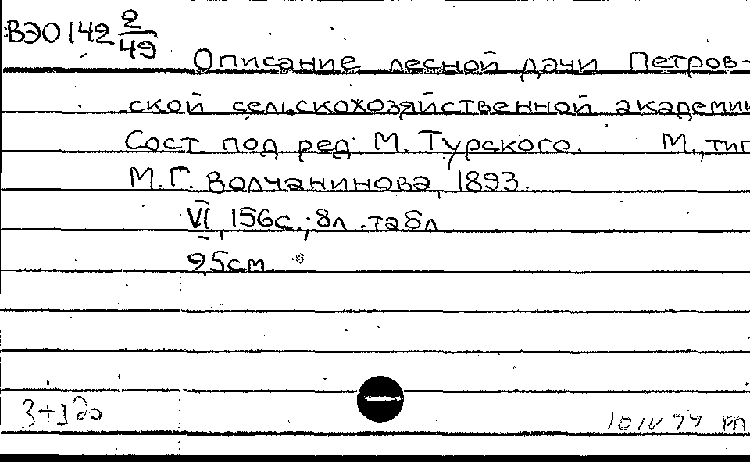 ВЭО 142 2/49
Описание лесной дачи Петров-
ской сельскохозяйственной академии
Сост. под ред. М. Турского. М., тип.
М.Г. Волчанинова, 1893.
VI, 156с.; 8л. табл
25см
10 IV 77